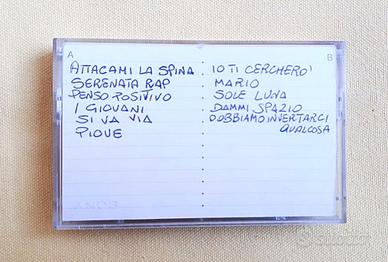 A
ATTACAMI LA SPINA
SERENATA RAP
PENSO POSITIVO
I GIOVANI
SI VA VIA
PIOVE
B
IO TI CERCHERO'
MARIO
SOLE LUNA
DAMMI SPAZIO
DOBBIAMO INVERTARCI
QUALCOSA
SONY